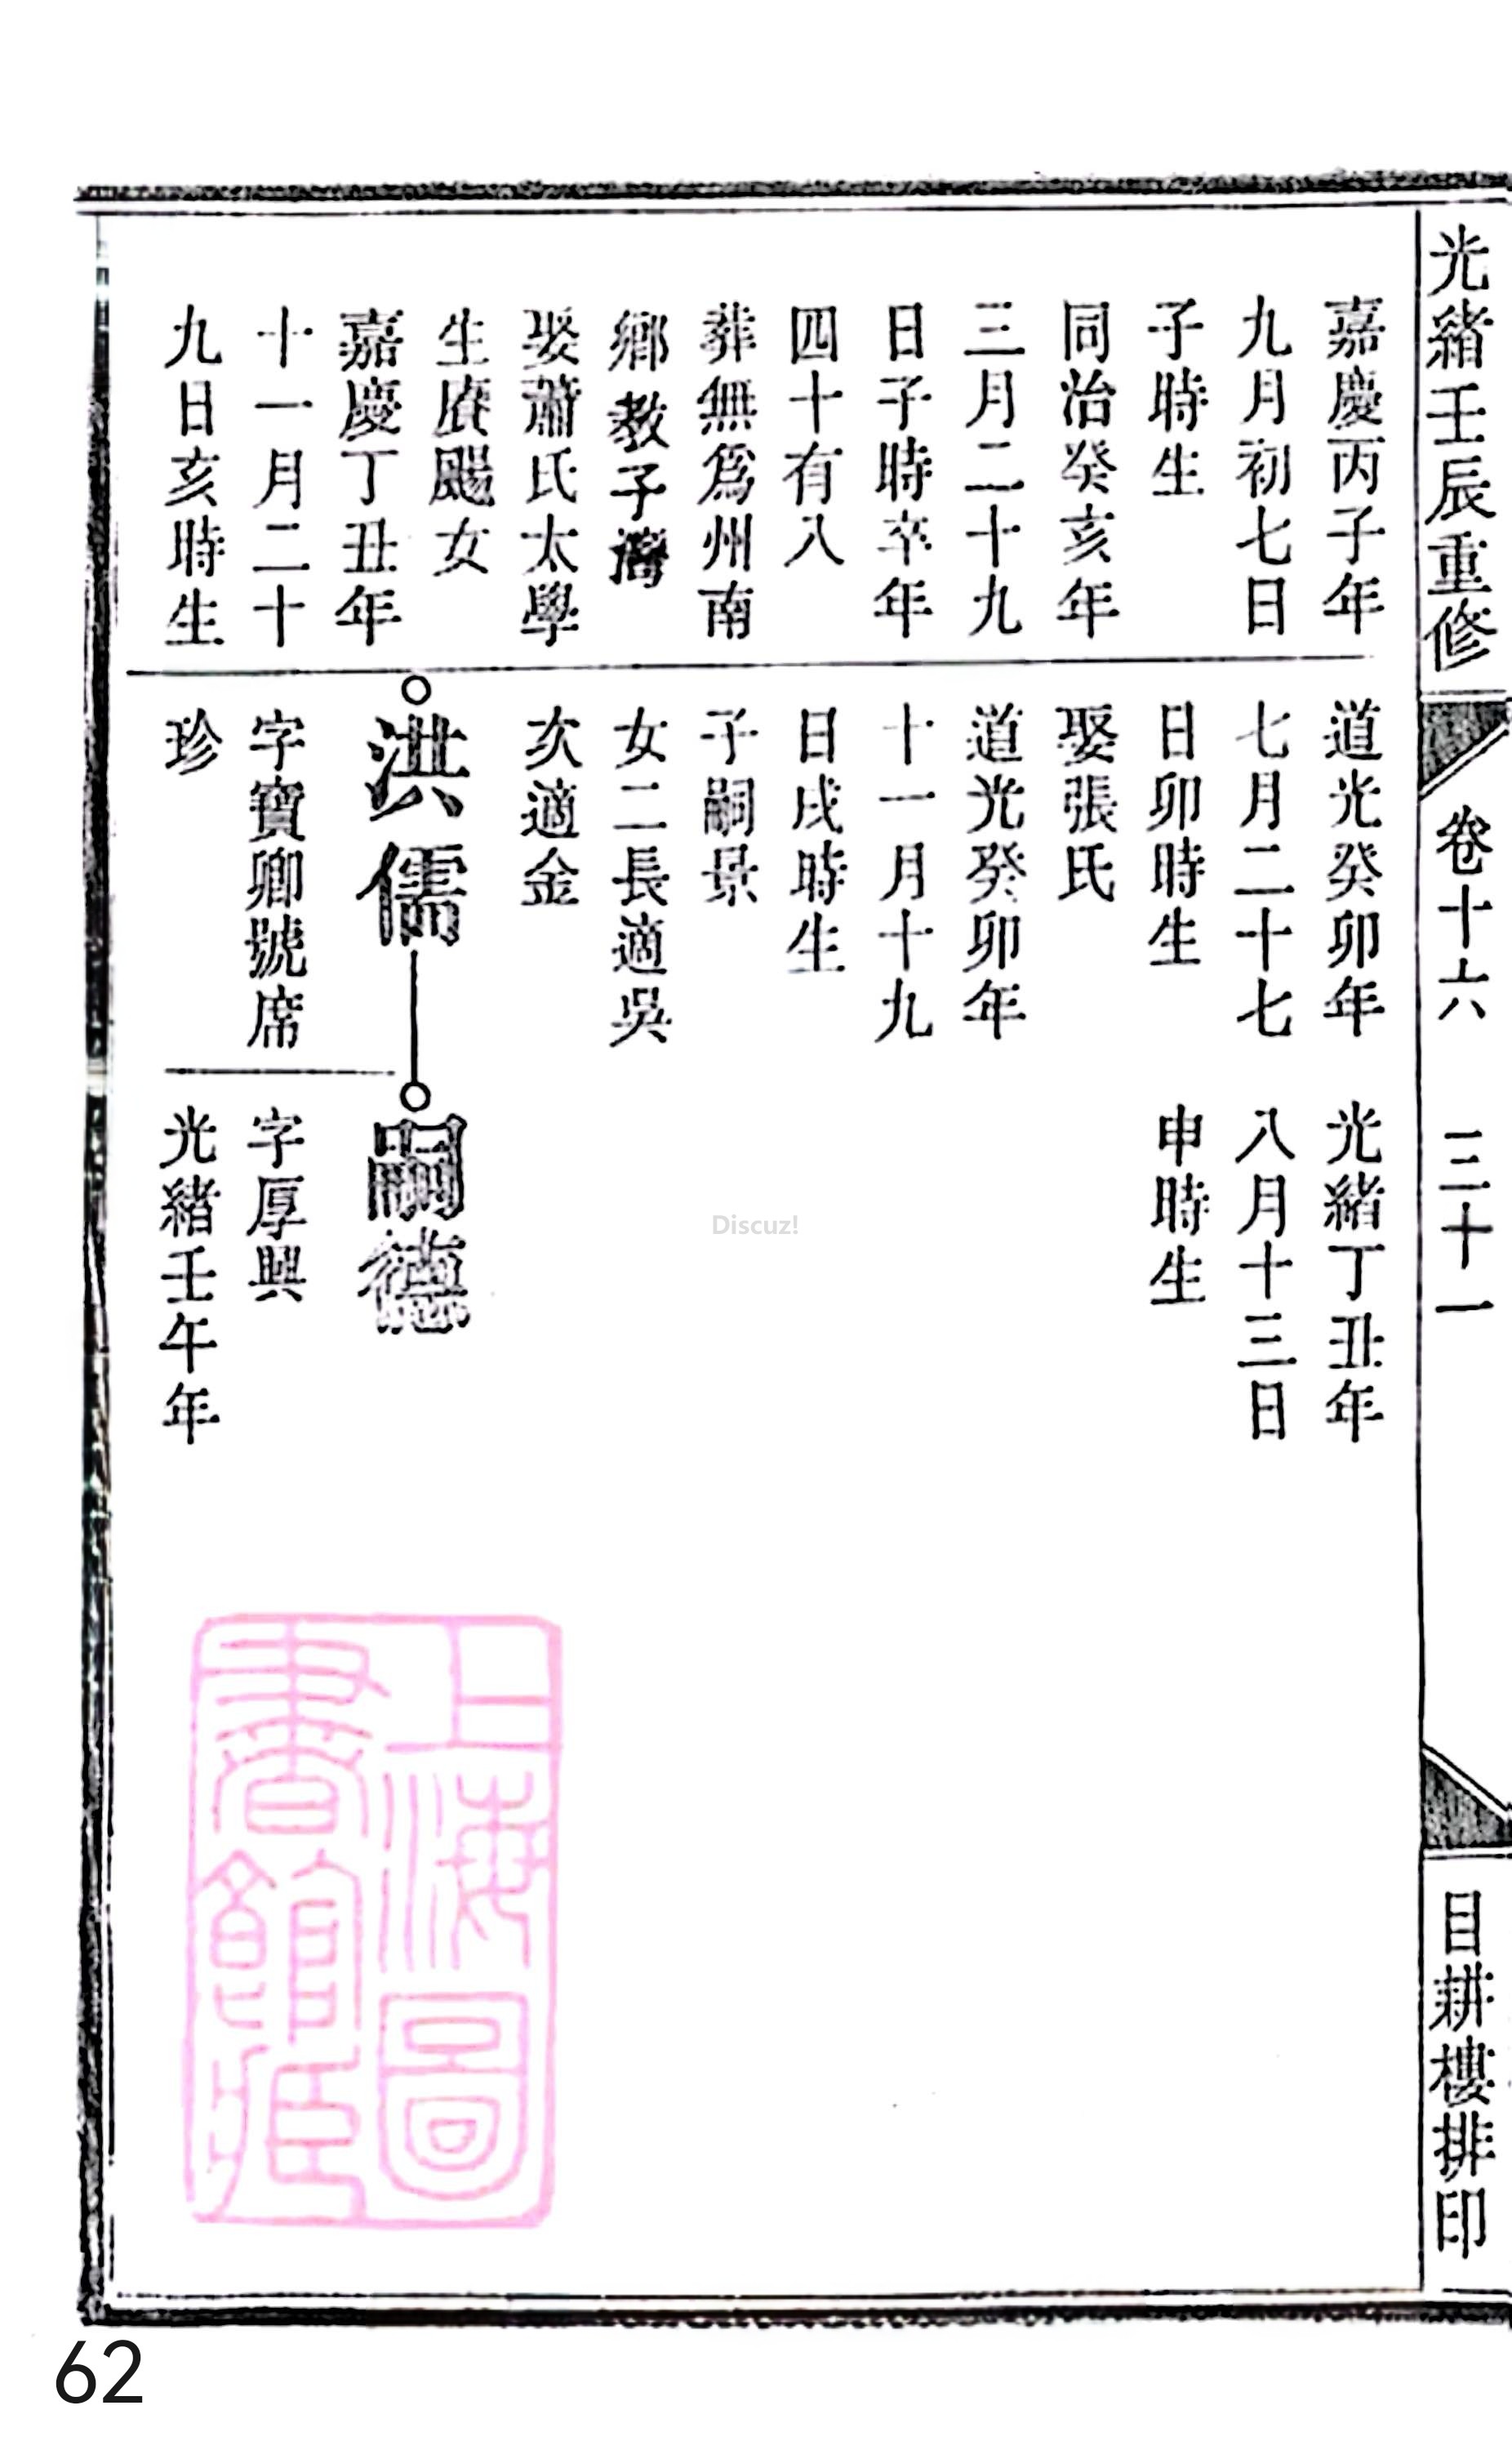 光緒壬辰重修
卷十六
三十一
目耕樓排印
嘉慶丙子年
九月初七日
子時生
同治癸亥年
三月二十九
日子時卒年
四十有八
葬無爲州南
鄉教子灣
娶蕭氏太學
生賡颺女
嘉慶丁丑年
十一月二十
九日亥時生
道光癸卯年
七月二十七
日卯時生
娶張氏
道光癸卯年
十一月十九
日戌時生
子嗣景
女二長適吳
次適金
洪儒
字寶卿號席
珍
光緒丁丑年
八月十三日
申時生
嗣德
字厚興
光緒壬午年
上海圖
書館藏
Discuz!
62